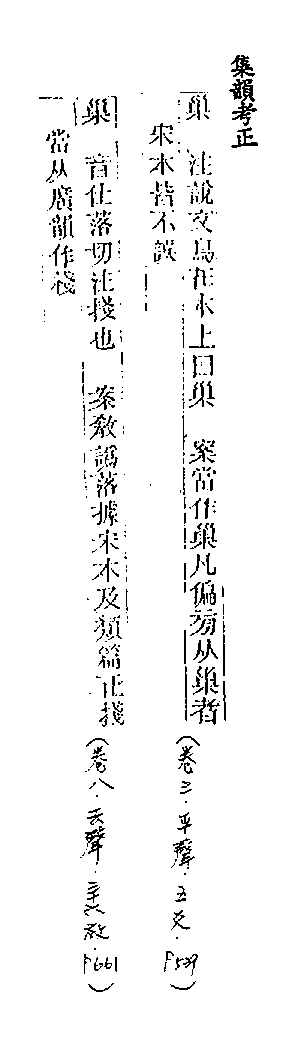 集韻考正
巢 注說文鳥在木上曰巢 案當作巢凡偏旁从巢者
宋本皆不誤
(卷三．平聲．五爻．P539)
巢 音仕落切注棧也 案敎譌落據宋本及類篇正棧
當从廣韻作棧
(卷八．去聲．三六效．P661)